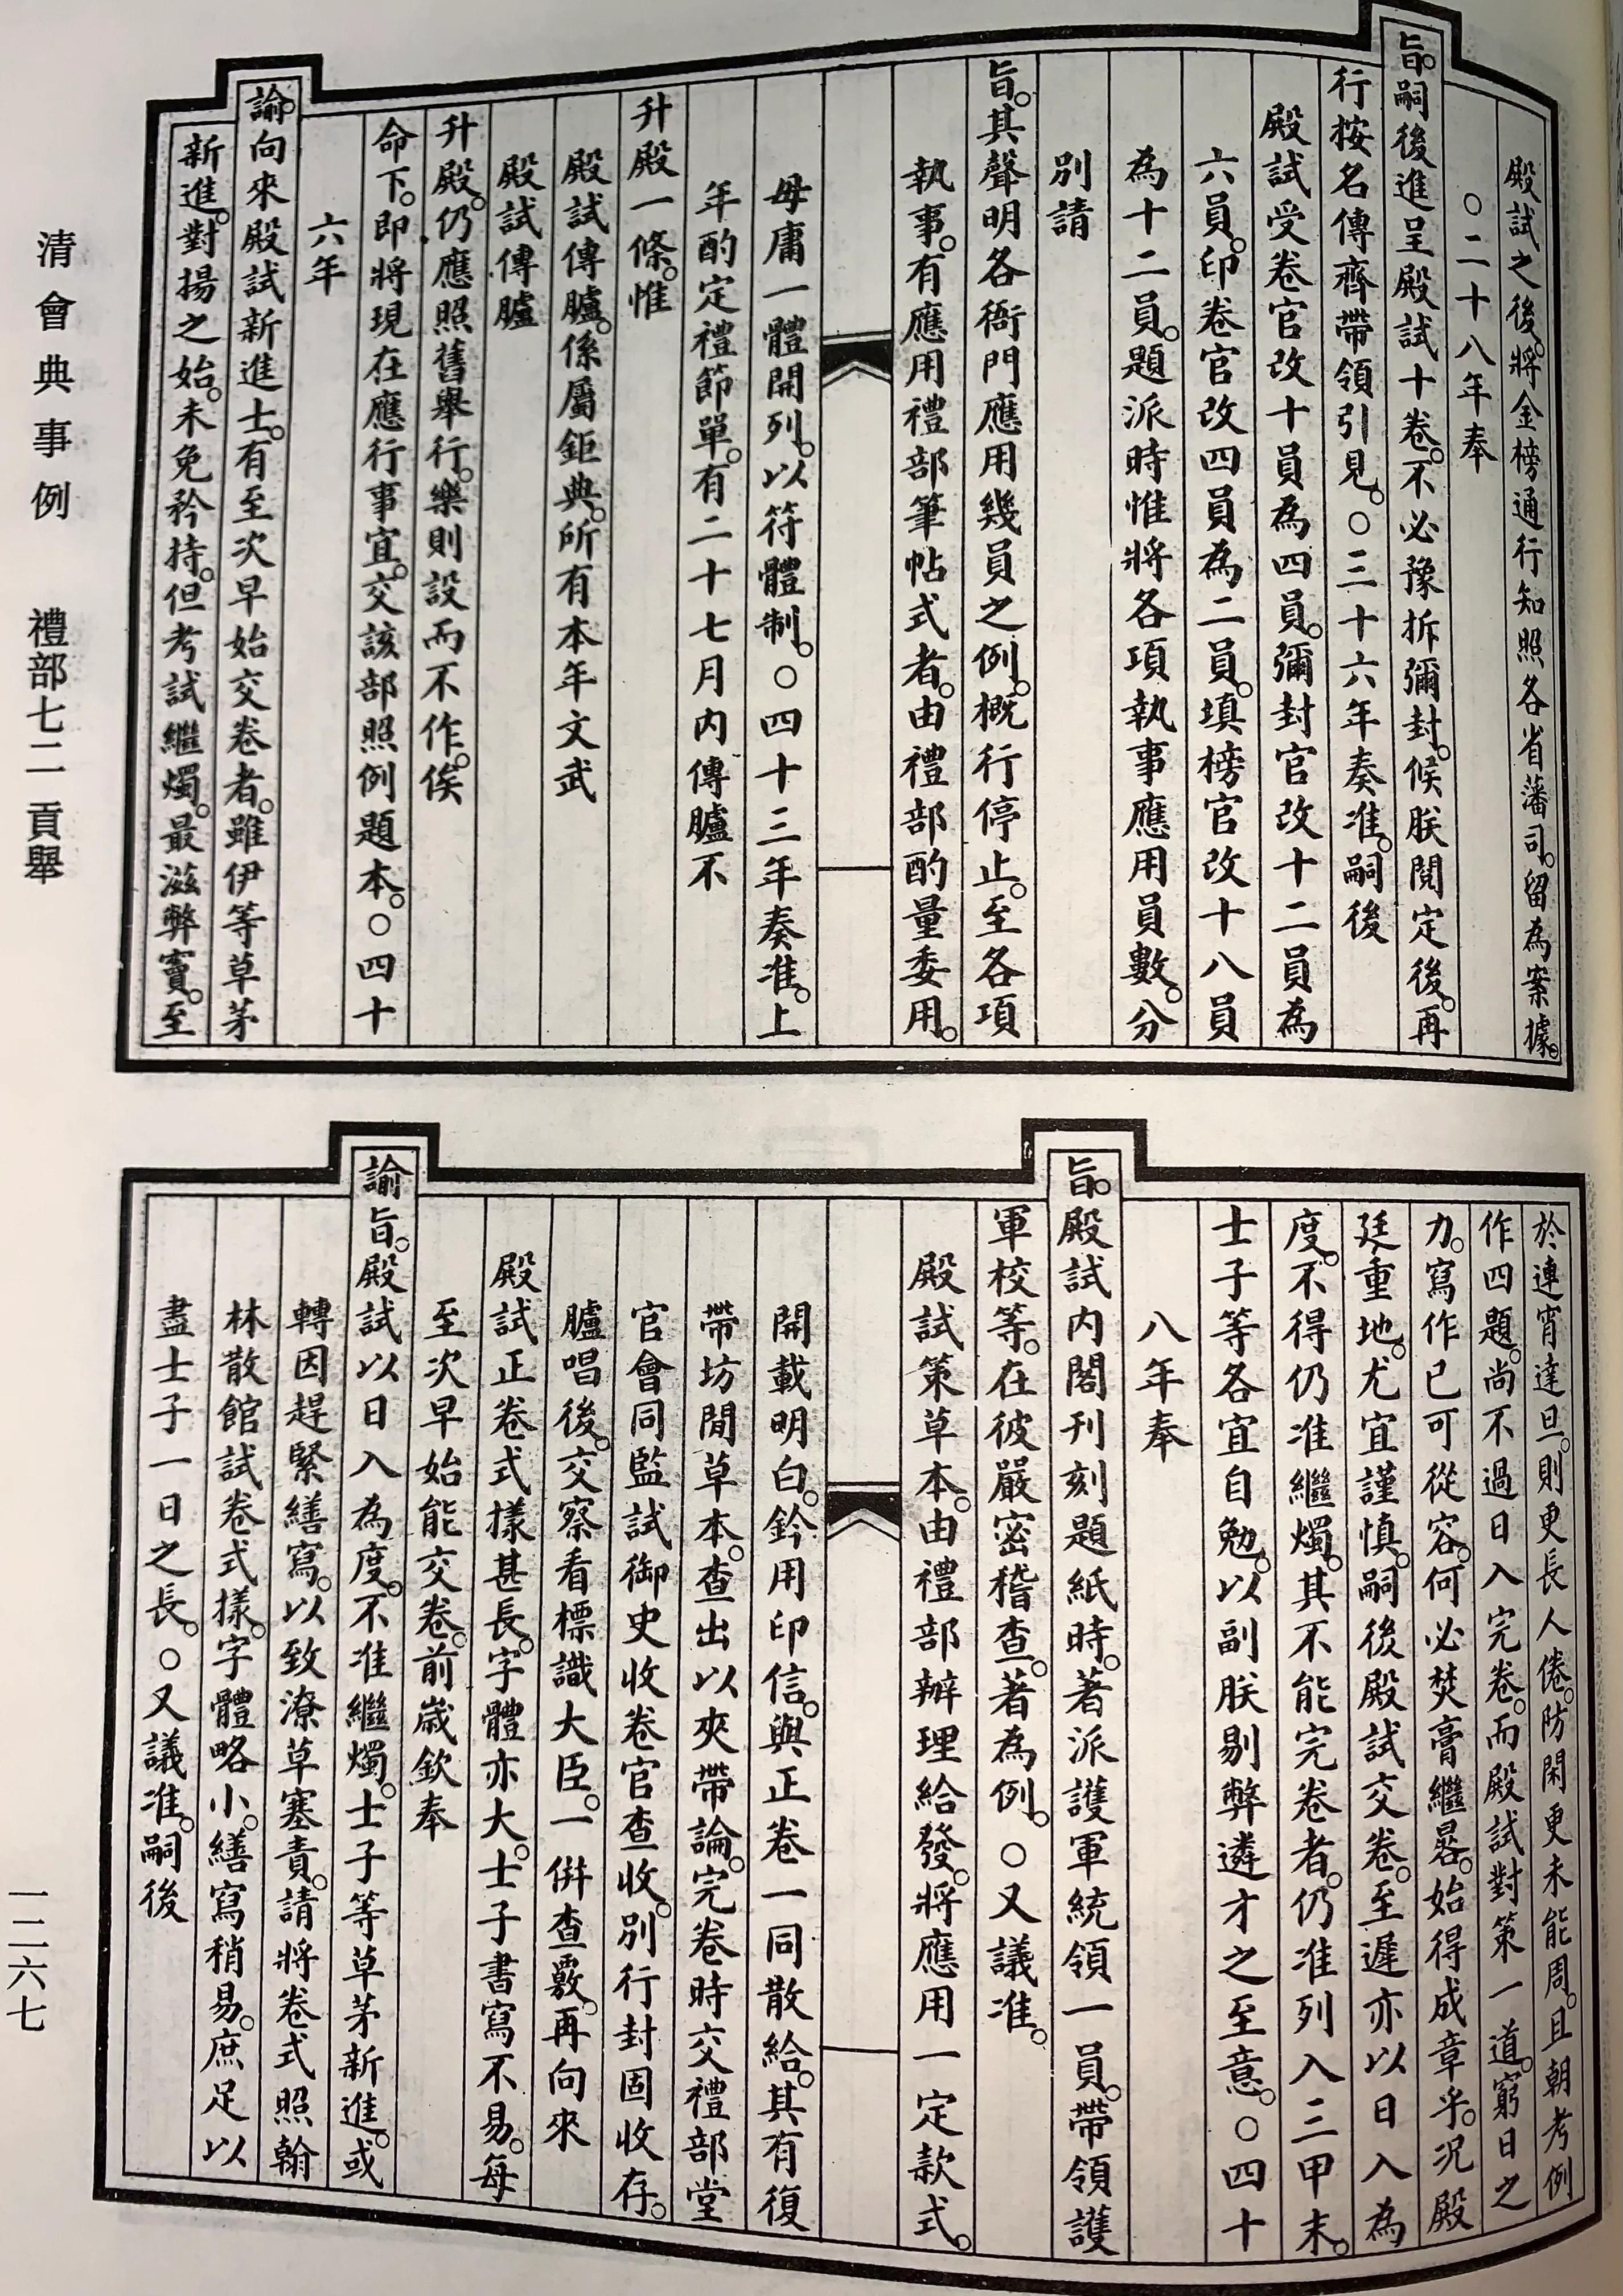 殿試之後。將金榜通行知照各省藩司。留為案據。
○二十八年奉
旨。嗣後進呈殿試十卷。不必豫拆彌封。候朕閱定後。再
行按名傳齊帶領引見。○三十六年奏准。嗣後
殿試受卷官改十員為四員。彌封官改十二員為
六員。印卷官改四員為二員。填榜官改十八員
為十二員。題派時惟將各項執事應用員數。分
別請
旨。其聲明各衙門應用幾員之例。概行停止。至各項
執事。有應用禮部筆帖式者。由禮部酌量委用。
毋庸一體開列。以符體制。○四十三年奏准。上
年酌定禮節單。有二十七月內傳臚不
升殿一條。惟
殿試傳臚。係屬鉅典。所有本年文武
殿試傳臚
升殿。仍應照舊舉行。樂則設而不作。俟
命下。即將現在應行事宜。交該部照例題本。○四十
六年
諭。向來殿試新進士。有至次早始交卷者。雖伊等草茅
新進。對揚之始。未免矜持。但考試繼燭。最滋弊竇。至
於連宵達旦。則更長人倦。防閑更未能周。且朝考例
作四題。尚不過日入完卷。而殿試對策一道。窮日之
力。寫作已可從容。何必焚膏繼晷。始得成章乎。況殿
廷重地。尤宜謹慎。嗣後殿試交卷。至遲亦以日入為
度。不得仍准繼燭。其不能完卷者。仍准列入三甲末。
士子等各宜自勉。以副朕剔弊遴才之至意。○四十
八年奉
旨。殿試內閣刊刻題紙時。著派護軍統領一員。帶領護
軍校等。在彼嚴密稽查。著為例。○又議准。
殿試策草本。由禮部辦理給發。將應用一定款式。
開載明白。鈐用印信。與正卷一同散給。其有復
帶坊閒草本。查出以夾帶論。完卷時交禮部堂
官會同監試御史收卷官查收。別行封固收存。
臚唱後。交察看標識大臣。一併查覈。再向來
殿試正卷式樣甚長。字體亦大。士子書寫不易。每
至次早始能交卷。前歲欽奉
諭旨。殿試以日入為度。不准繼燭。士子等草茅新進。或
轉因趕緊繕寫。以致潦草塞責。請將卷式照翰
林散館試卷式樣。字體略小。繕寫稍易。庶足以
盡士子一日之長。○又議准。嗣後
清會典事例 禮部七二 貢舉
一二六七